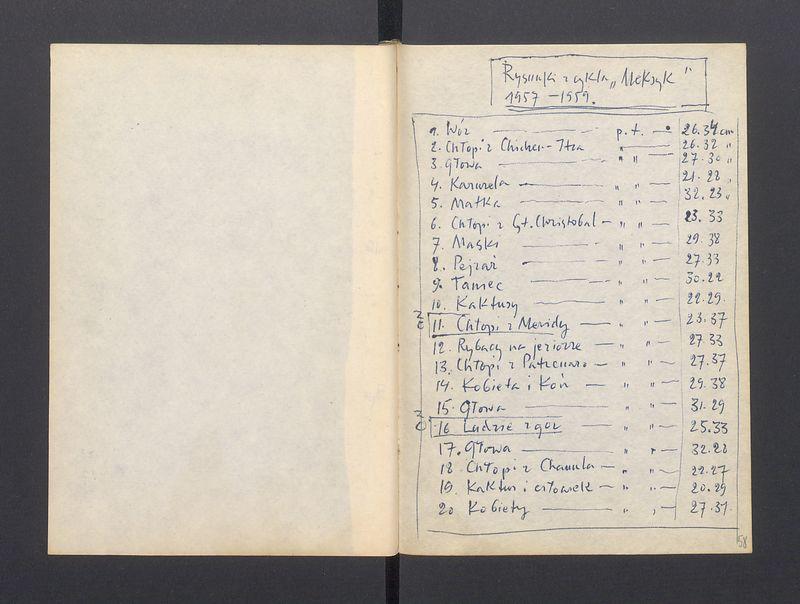 Rysunki z cyklu „Meksyk"
1957 – 1959.
1. Wóz — p. t. — 26.34 cm
2. Chłopi z Chichen-Itza — " — 26.32 "
3. Głowa — " " — 27.30 "
4. Karuzela — " " — 21.22 "
5. Matka — " " — 32.23 "
6. Chłopi z St. Christobal — " " — 23.33
7. Maski — " " — 29.38
8. Pejzaż — " " — 27.33
9. Taniec — " " — 30.22
10. Kaktusy — " " — 22.29.
11. Chłopi z Meridy — " " — 23.37
12. Rybacy na jeziorze — " " — 27.33
13. Chłopi z — " " — 27.37
14. Kobieta i Koń — " " — 29.38
15. Głowa — " " — 31.29
16 Ludzie z gór — " " — 25.33
17. Głowa — " " — 32.22
18. Chłopi z Chamula — " " — 22.27
19. Kaktus i człowiek — " " — 20.29
20 Kobiety — " " — 27.31.
58